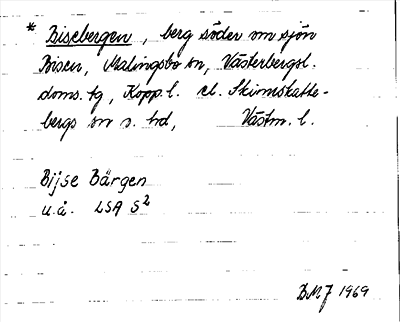 * Bisebergen, berg söder om sjön
Bisen, Malingsbo sn, Västerbergsl.
doms. tg, Kopp. l. el. Skinnskatte-
bergs sn o. hd, Västm. l.
Bijse Bärgen
u.å. LSA S2
BMJ 1969